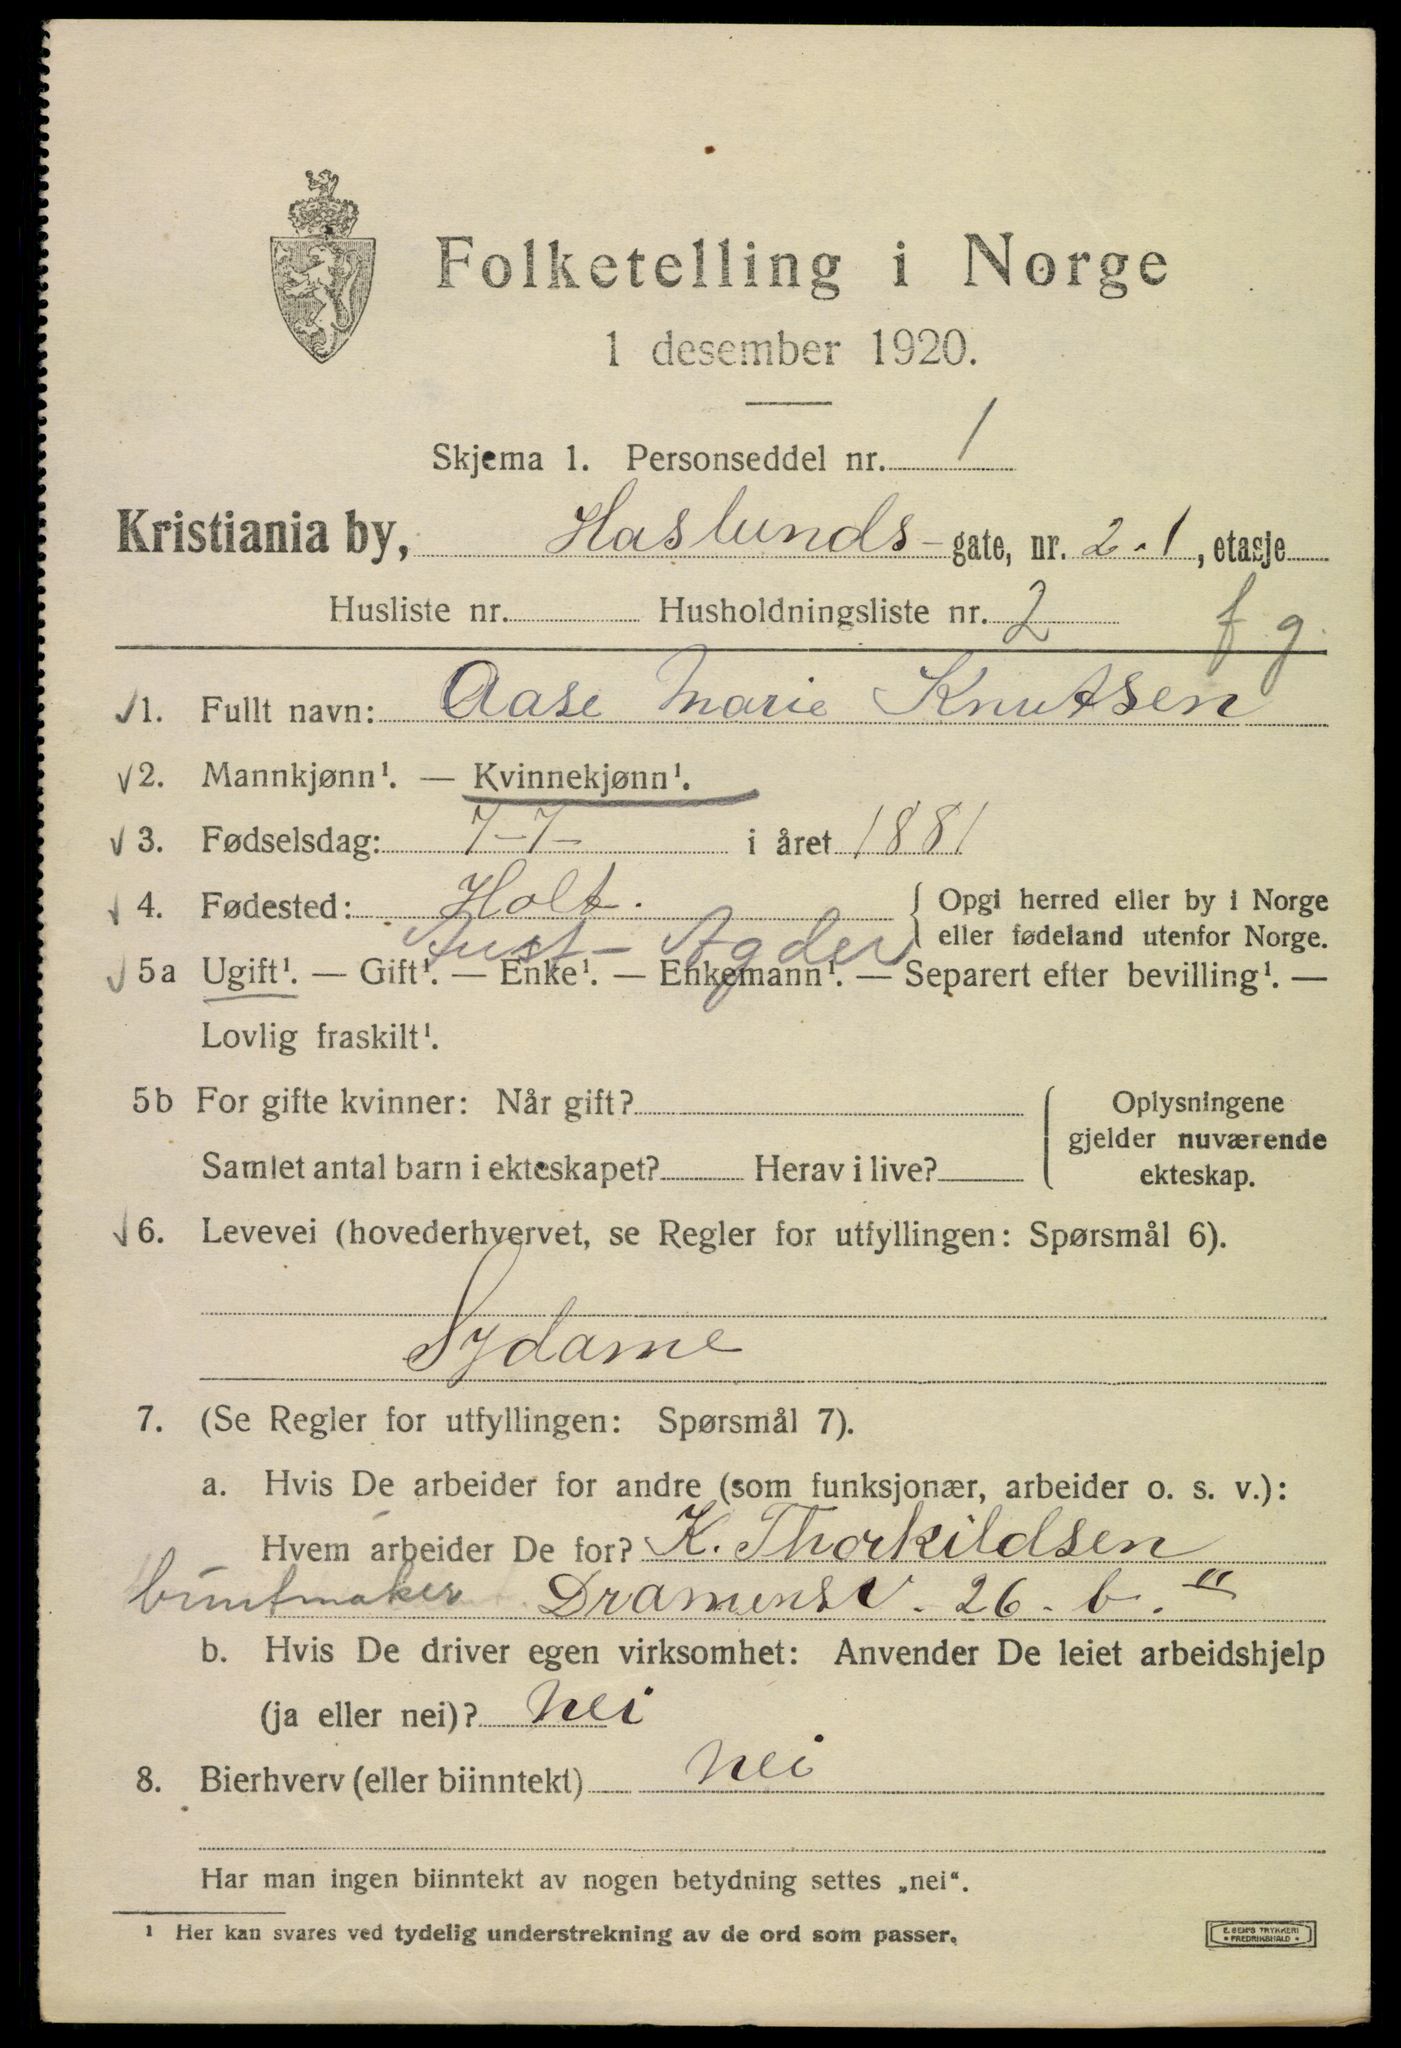 Folketelling i Norge
1 desember 1920.
Skjema 1. Personseddel nr. 1
Kristiania by, Haslunds-gate, nr. 2.1, etasje
Husliste nr. Husholdningsliste nr. 2 f g.
1. Fullt navn: Aase Marie Knutsen
2. Mannkjønn¹. — Kvinnekjønn¹.
3. Fødselsdag: 7-7- i året 1881
4. Fødested: Holt. { Opgi herred eller by i Norge
Aust-Agder eller fødeland utenfor Norge.
5a Ugift¹. — Gift¹. — Enke¹. — Enkemann¹. — Separert efter bevilling¹. —
Lovlig fraskilt¹.
5b For gifte kvinner: Når gift? Oplysningene
gjelder nuværende
Samlet antal barn i ekteskapet? Herav i live? ekteskap.
6. Levevei (hovederhvervet, se Regler for utfyllingen: Spørsmål 6).
Sydame
7. (Se Regler for utfyllingen: Spørsmål 7).
a. Hvis De arbeider for andre (som funksjonær, arbeider o. s. v.):
Hvem arbeider De for? K. Thorkildsen
buntmaker Dramensv. 26. b. II
b. Hvis De driver egen virksomhet: Anvender De leiet arbeidshjelp
(ja eller nei)? Nei
8. Bierhverv (eller biinntekt) Nei
Har man ingen biinntekt av nogen betydning settes „nei“.
¹ Her kan svares ved tydelig understrekning av de ord som passer.
E. SEM'S TRYKKERI
• FREDRIKSHALD •